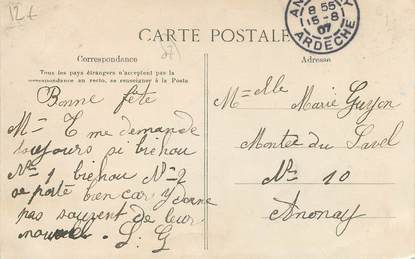 12€
CARTE POSTALE
AN Y
8 55
15-8
07
ARDECHE
Correspondance
Tous les pays étrangers n'acceptent pas la
correspondance au recto, se renseigner à la Poste
Adresse
Bonne fête
Me demande
toujours si
No 1 No 2
se porte bien car y donne
pas souvent de leur
L. G
Melle Marie Guyon
Montée du Savel
No 10
Anonay